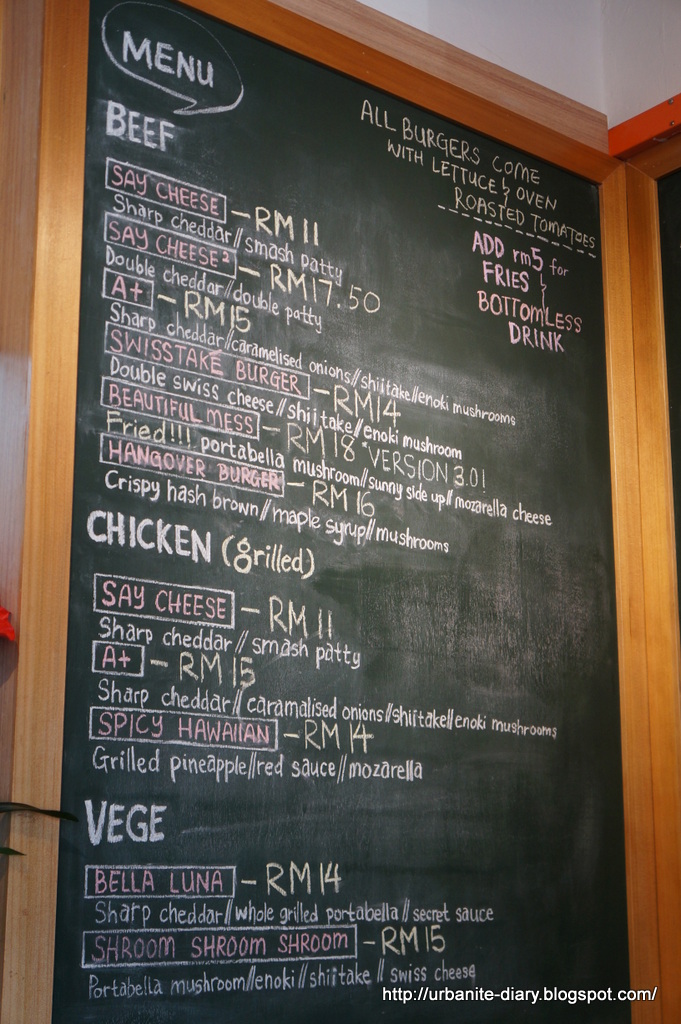 MENU
ALL BURGERS COME
WITH LETTUCE & OVEN
ROASTED TOMATOES
ADD rm5 for
FRIES &
BOTTOMLESS
DRINK
BEEF
SAY CHEESE - RM 11
Sharp cheddar//smash patty
SAY CHEESE² - RM17.50
Double cheddar/double patty
A+ - RM15
Sharp cheddar//caramelised onions//shiitake//enoki mushrooms
SWISSTAKE BURGER - RM14
Double swiss cheese//shiitake//enoki mushroom
BEAUTIFUL MESS - RM18 "VERSION 3.01
Fried!!! portabella mushroom//sunny side up//mozarella cheese
HANGOVER BURGER - RM16
Crispy hash brown//maple syrup//mushrooms
CHICKEN (grilled)
SAY CHEESE - RM 11
Sharp cheddar//smash patty
A+ - RM 15
Sharp cheddar//caramalised onions//shiitake//enoki mushrooms
SPICY HAWAIIAN - RM14
Grilled pineapple//red sauce//mozarella
VEGE
BELLA LUNA - RM14
Sharp cheddar//whole grilled portabella//secret sauce
SHROOM SHROOM SHROOM - RM15
Portabella mushroom//enoki//shiitake//swiss cheese
http://urbanite-diary.blogspot.com/